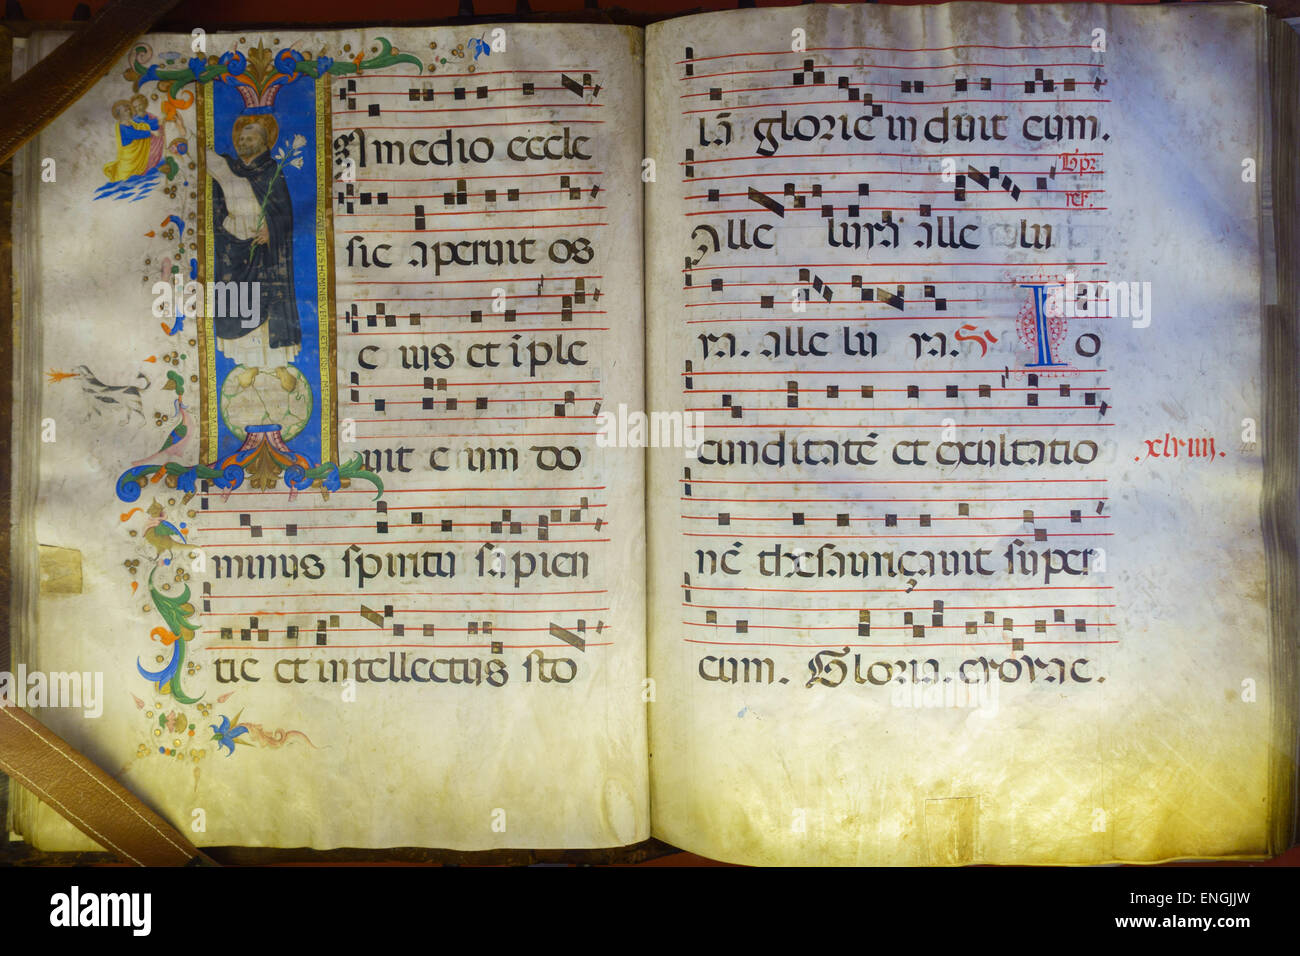 In medio eccle
sie aperuit os
eius et iple
uit eum do
minus spiritu sapien
tie et intellectus sto
lā glorie induit eum.
Alle luya alle lu
ya. alle lu ya. Io
cunditatē et exultatio
.xlviiij.
nē thesauriçauit super
eum. Gloria. evovae.
alamy
Image ID: ENGJJW
www.alamy.com